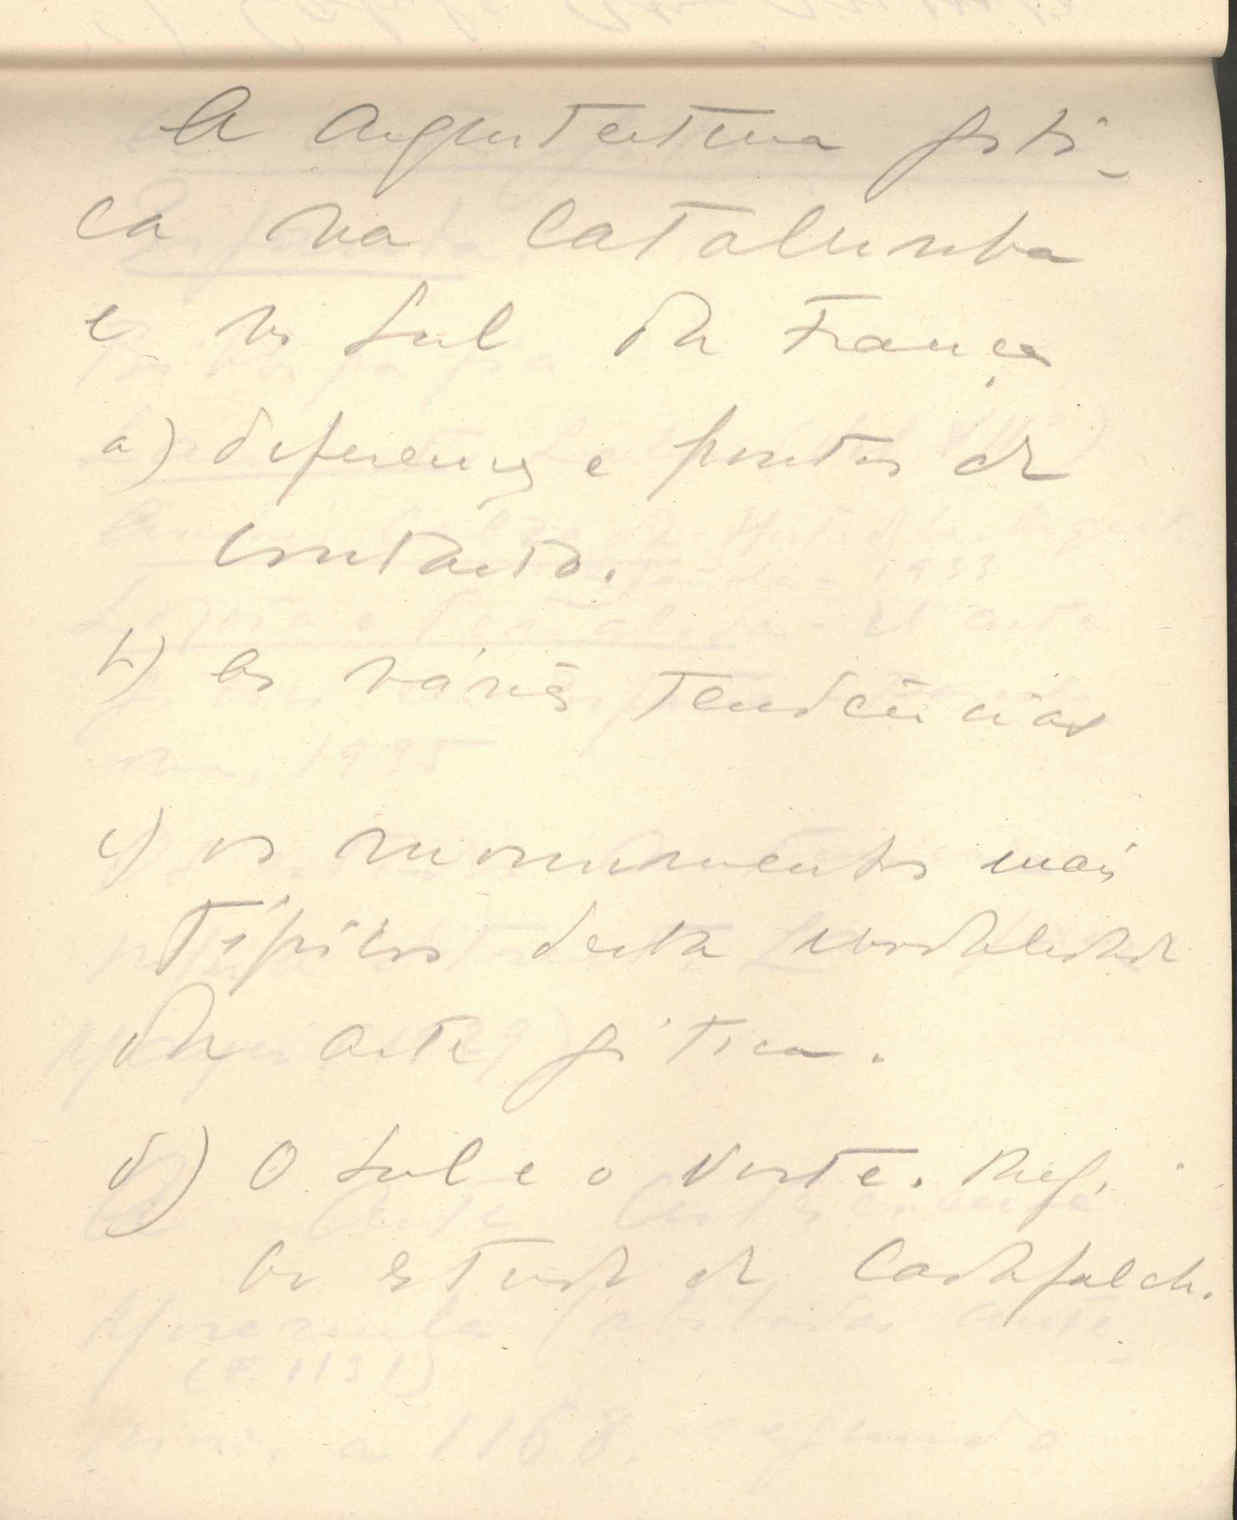 A Arquitectura góti-
ca na Catalunha
e no Sul da França
a) diferenças e pontos de
contacto.
b) as várias tendências
c) os monumentos mais
típicos desta modalidade
da arte gótica.
d) O Sul e o Norte. Ref.
ao estudo de Cadafalch.